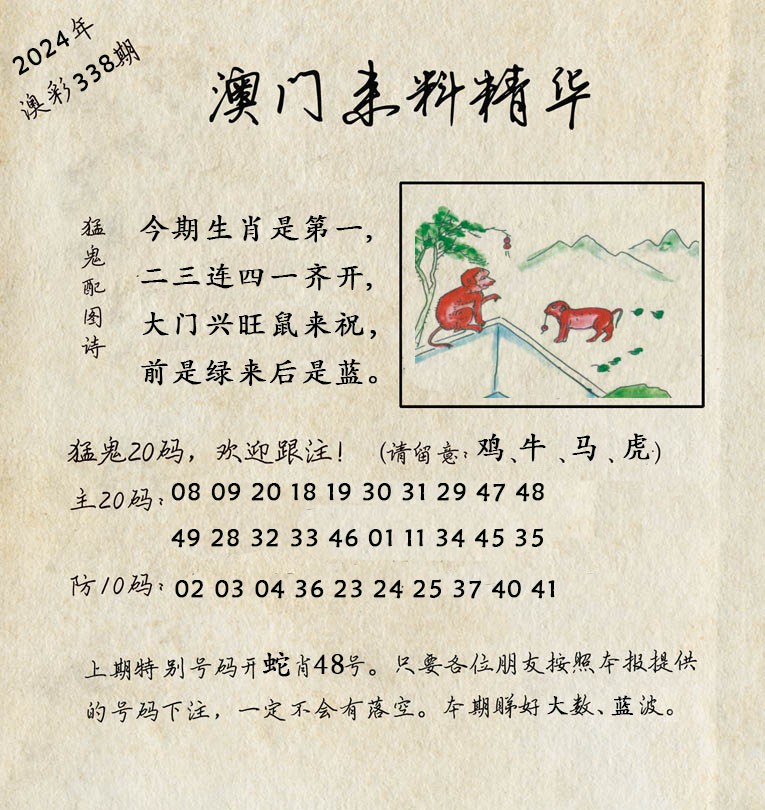 2024年
澳彩338期
澳门来料精华
猛鬼配图诗
今期生肖是第一,
二三连四一齐开,
大门兴旺鼠来祝,
前是绿来后是蓝。
猛鬼20码，欢迎跟注！（请留意：鸡、牛、马、虎）
主20码：08 09 20 18 19 30 31 29 47 48
49 28 32 33 46 01 11 34 45 35
防10码：02 03 04 36 23 24 25 37 40 41
上期特别号码开蛇肖48号。只要各位朋友按照本报提供
的号码下注，一定不会有落空。本期睇好大数、蓝波。